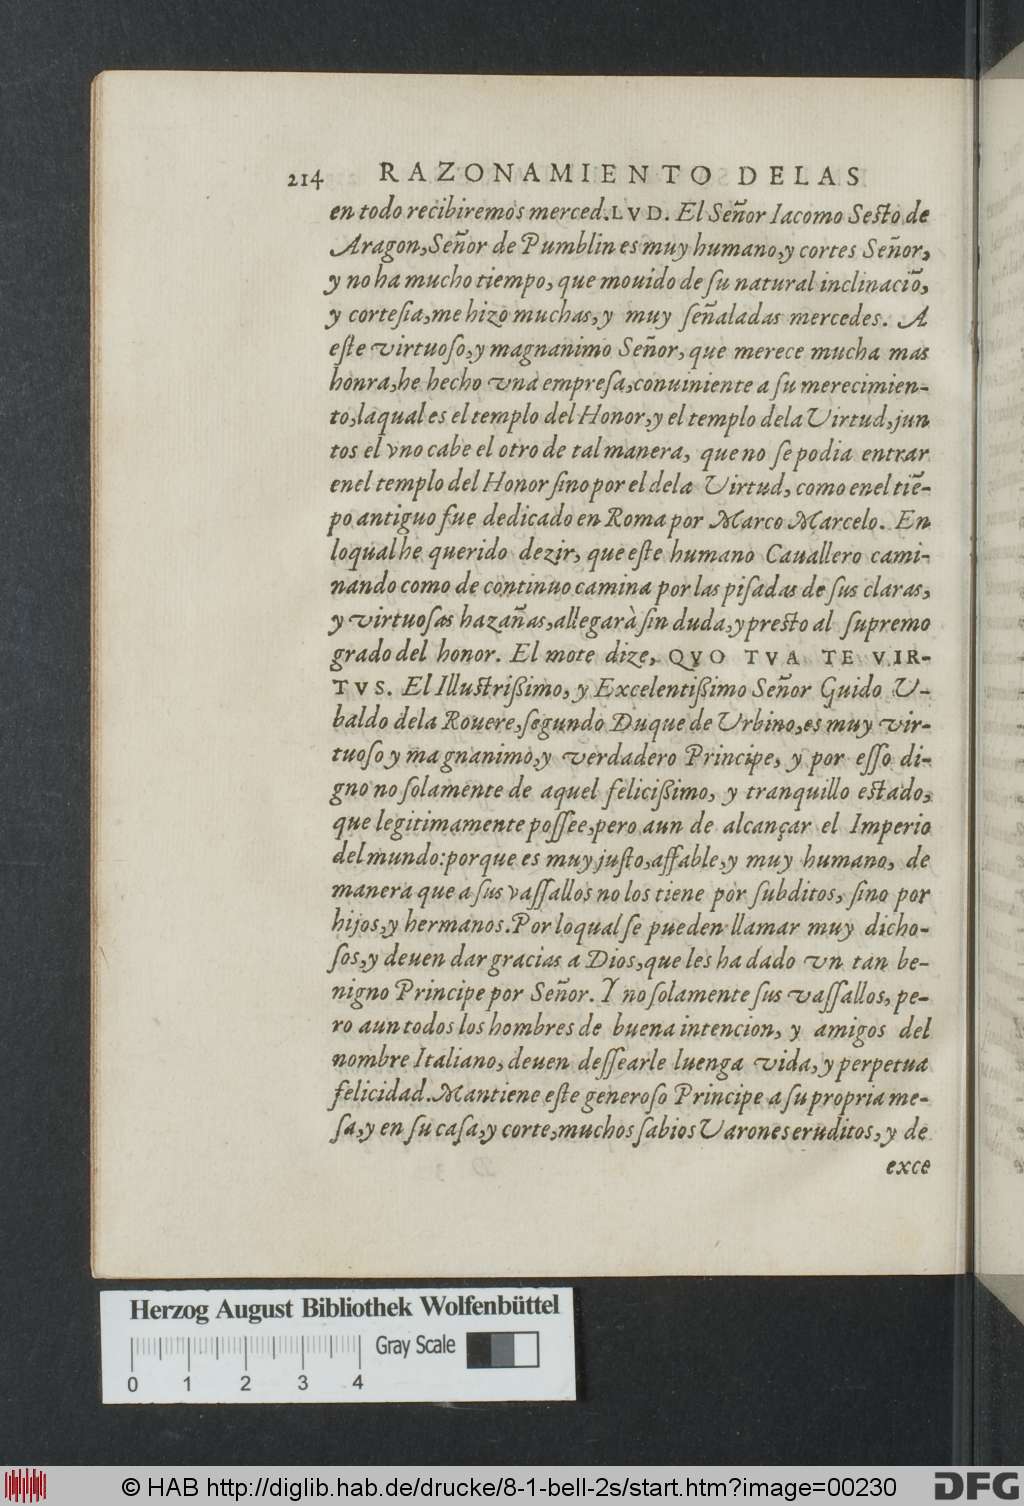 214 RAZONAMIENTO DELAS
en todo recibiremos merced. LVD. El Señor Iacomo Sesto de
Aragon, Señor de Pumblin es muy humano, y cortes Señor,
y no ha mucho tiempo, que mouido de su natural inclinaciõ,
y cortesia, me hizo muchas, y muy señaladas mercedes. A
este virtuoso, y magnanimo Señor, que merece mucha mas
honra, he hecho vna empresa, conuiniente a su merecimien-
to, laqual es el templo del Honor, y el templo dela Virtud, jun
tos el vno cabe el otro de tal manera, que no se podia entrar
enel templo del Honor sino por el dela Virtud, como enel tiẽ-
po antiguo fue dedicado en Roma por Marco Marcelo. En
loqual he querido dezir, que este humano Cauallero cami-
nando como de continuo camina por las pisadas de sus claras,
y virtuosas hazañas, allegarà sin duda, y presto al supremo
grado del honor. El mote dize, QVO TVA TE VIR-
TVS. El Illustrißimo, y Excelentißimo Señor Guido V-
baldo dela Rouere, segundo Duque de Vrbino, es muy vir-
tuoso y magnanimo, y verdadero Principe, y por esso di-
gno no solamente de aquel felicißimo, y tranquillo estado,
que legitimamente possee, pero aun de alcançar el Imperio
del mundo: porque es muy justo, affable, y muy humano, de
manera que a sus vassallos no los tiene por subditos, sino por
hijos, y hermanos. Por loqual se pueden llamar muy dicho-
sos, y deuen dar gracias a Dios, que les ha dado vn tan be-
nigno Principe por Señor. Y no solamente sus vassallos, pe-
ro aun todos los hombres de buena intencion, y amigos del
nombre Italiano, deuen dessearle luenga vida, y perpetua
felicidad. Mantiene este generoso Principe a su propria me-
sa, y en su casa, y corte, muchos sabios Varones eruditos, y de
exce
Herzog August Bibliothek Wolfenbüttel
Gray Scale
0 1 2 3 4
© HAB http://diglib.hab.de/drucke/8-1-bell-2s/start.htm?image=00230
DFG